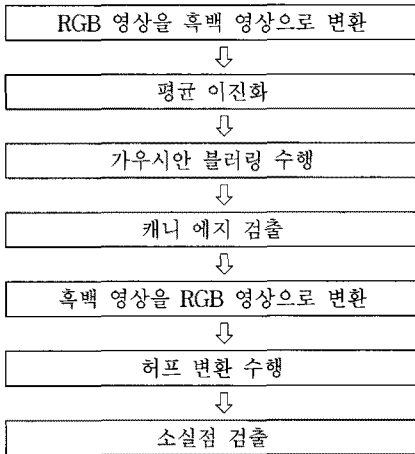 RGB 영상을 흑백 영상으로 변환
평균 이진화
가우시안 블러링 수행
캐니 에지 검출
흑백 영상을 RGB 영상으로 변환
허프 변환 수행
소실점 검출